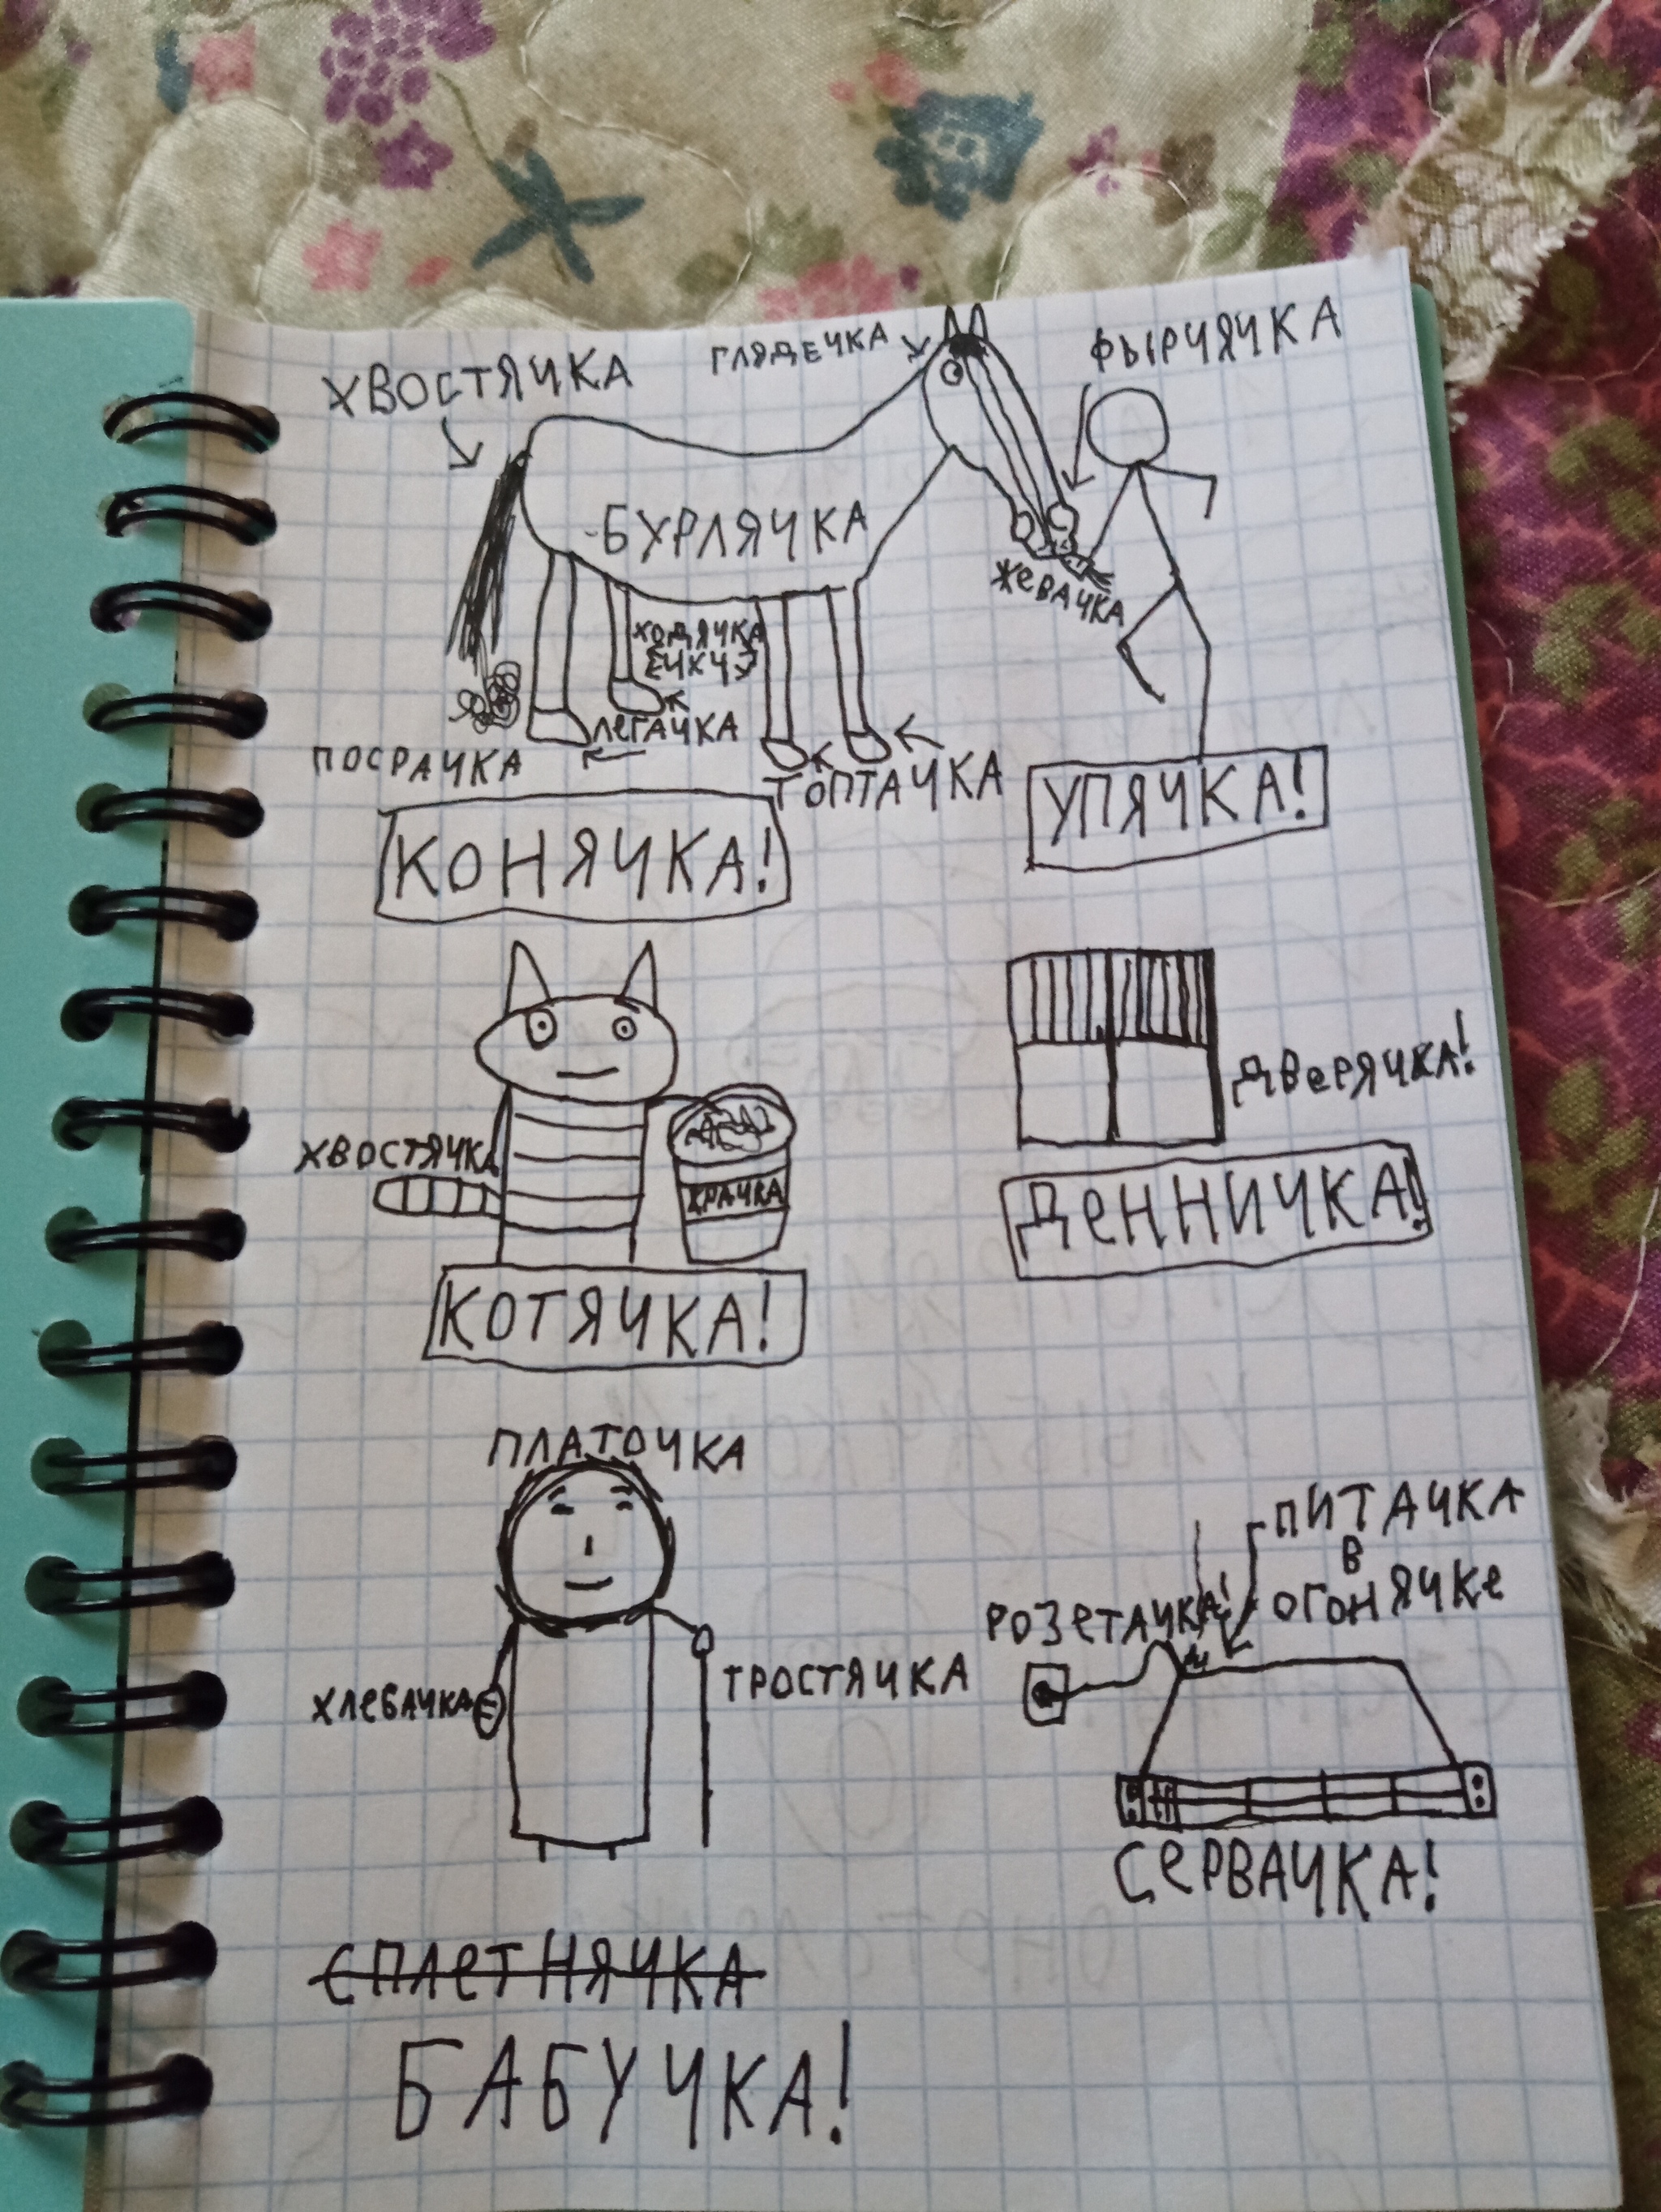 ХВОСТЯЧКА
ГЛЯДЕЧКА
ФЫРЧЯЧКА
БУРЛЯЧКА
ЖЕВАЧКА
ХОДЯЧКА
ЛЕГАЧКА
ПОСРАЧКА
ТОПТАЧКА
КОНЯЧКА!
УПЯЧКА!
ДВеРЯЧКА!
ХВОСТЯЧКА
ЖРАЧКА
ДеННИЧКА!
КОТЯЧКА!
ПЛАТОЧКА
ПИТАЧКА
В
ОГОНЯЧКе
РОЗеТАЧКА!
ТРОСТЯЧКА
ХЛеБАЧКА
СеРВАЧКА!
СПЛеТНЯЧКА
БАБУЧКА!